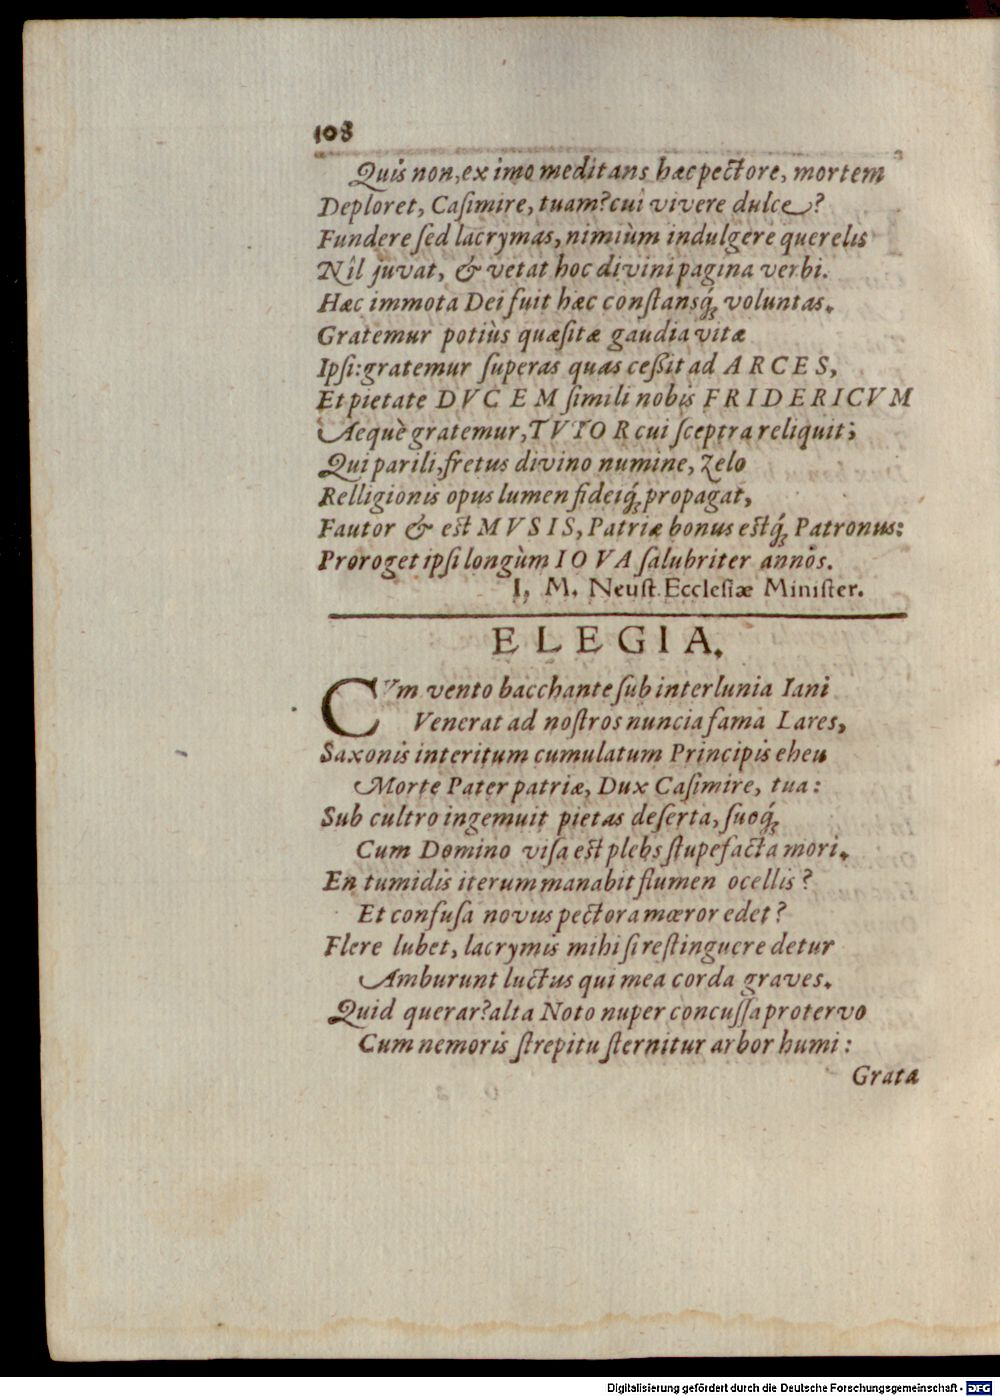 108
Quis non, ex imo meditans hæc pectore, mortem
Deploret, Caſimire, tuam? cui vivere dulce?
Fundere ſed lacrymas, nimiùm indulgere querelis
Nîl juvat, & vetat hoc divini pagina verbi.
Hæc immota Dei fuit hæc conſtansq́ꝫ voluntas.
Gratemur potiùs quæſitæ gaudia vitæ
Ipſi: gratemur ſuperas quas ceſſit ad ARCES,
Et pietate DVCEM ſimili nobis FRIDERICVM
Aequè gratemur, TVTOR cui ſceptra reliquit;
Qui parili, fretus divino numine, zelo
Relligionis opus lumen fideiq́ꝫ propagat,
Fautor & eſt MVSIS, Patriæ bonus eſtq́ꝫ Patronus:
Proroget ipſi longùm IOVA ſalubriter annôs.
I. M. Neuſt. Eccleſiæ Miniſter.
ELEGIA.
CVm vento bacchante ſub interlunia Iani
Venerat ad noſtros nuncia fama Lares,
Saxonis interitum cumulatum Principis eheu
Morte Pater patriæ, Dux Caſimire, tua:
Sub cultro ingemuit pietas deſerta, ſuoq́ꝫ
Cum Domino viſa eſt plebs ſtupefacta mori.
En tumidis iterum manabit flumen ocellis?
Et confuſa novus pectora mœror edet?
Flere lubet, lacrymis mihi ſi reſtinguere detur
Amburunt luctus qui mea corda graves.
Quid querar? alta Noto nuper concuſſa protervo
Cum nemoris ſtrepitu ſternitur arbor humi:
Grata
Digitalisierung gefördert durch die Deutsche Forschungsgemeinschaft - DFG